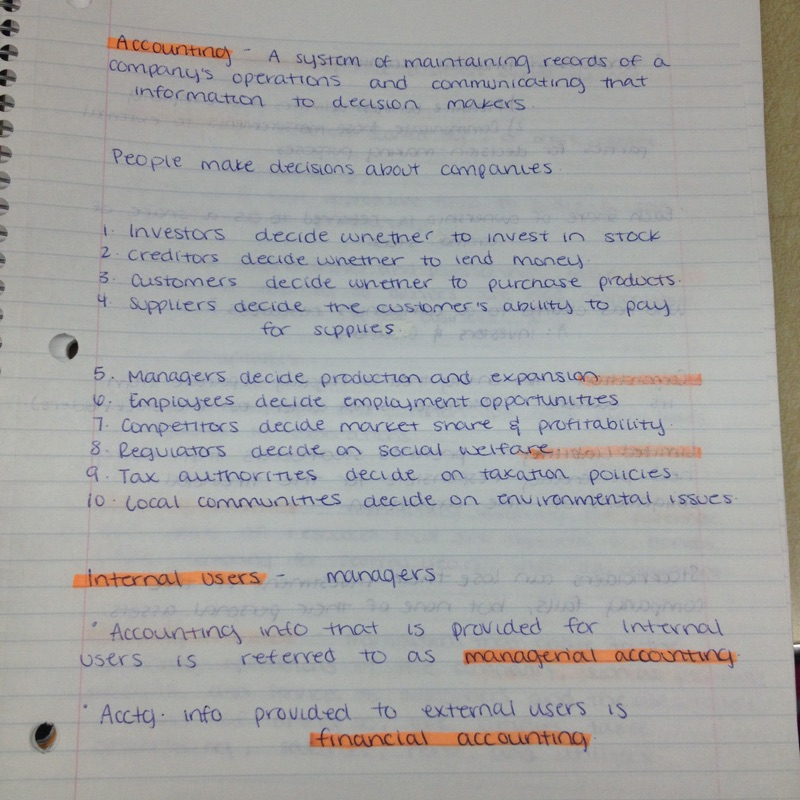 Accounting - A system of maintaining records of a
company's operations and communicating that
information to decision makers.
People make decisions about companies.
1. Investors decide whether to invest in stock
2. Creditors decide whether to lend money.
3. Customers decide whether to purchase products.
4. Suppliers decide the customer's ability to pay
for supplies.
5. Managers decide production and expansion
6. Employees decide employment opportunities
7. Competitors decide market share & profitability.
8. Regulators decide on social welfare
9. Tax authorities decide on taxation policies
10. Local communities decide on environmental issues.
Internal users - managers
• Accounting info that is provided for internal
users is referred to as managerial accounting.
• Acctg. info provided to external users is
financial accounting.